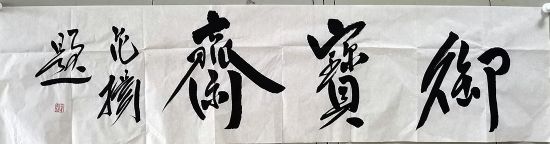 御寶齋
范撲題